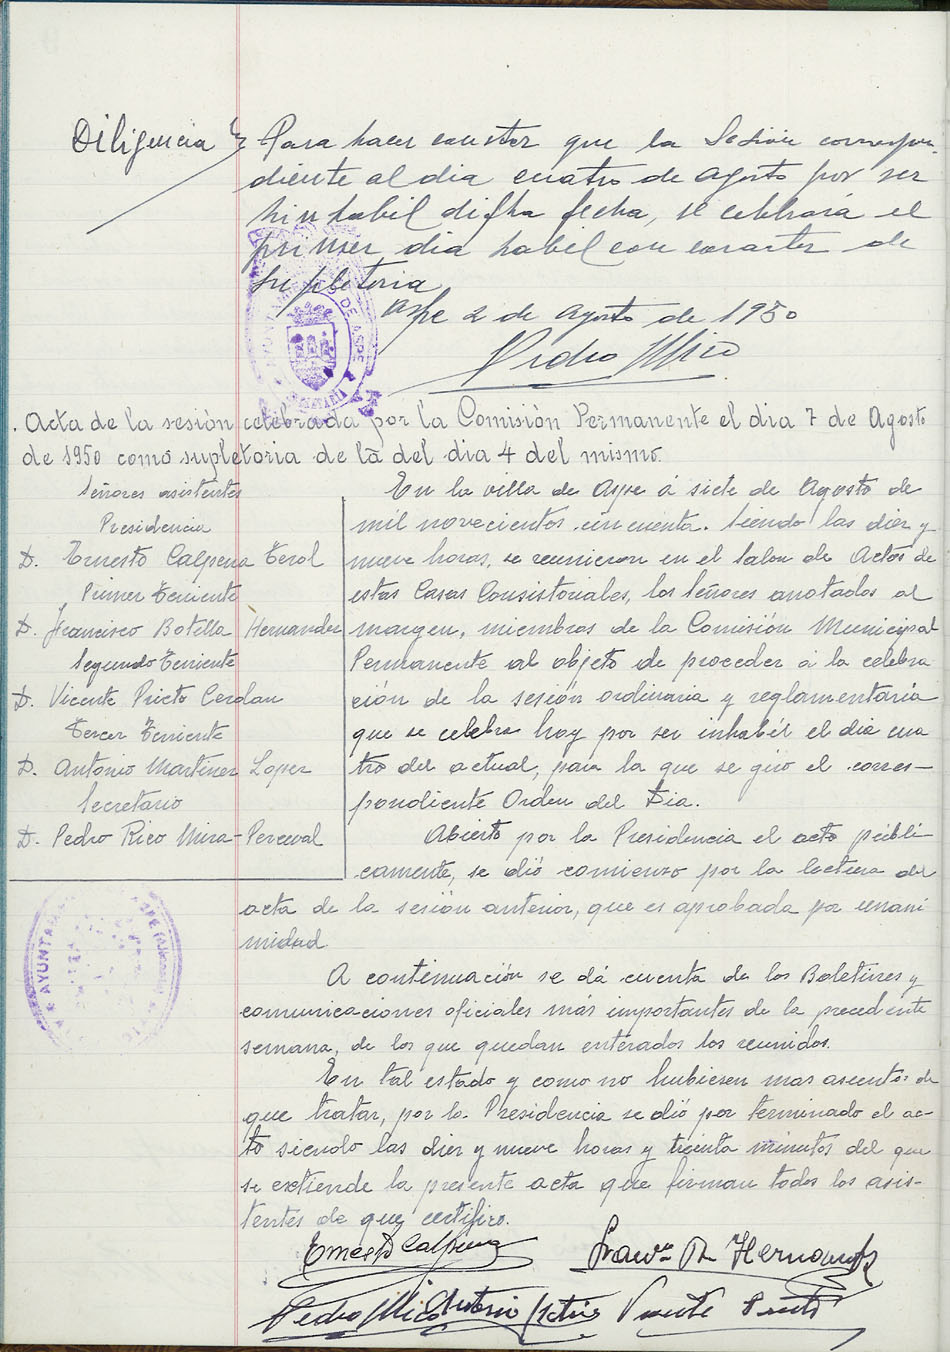 Diligencia Para hacer constar que la Sesión correspon-
diente al dia cuatro de agosto por ser
hinhabil dicha fecha, se celebrará el
primer dia habil con caracter de
supletoria
Aspe 2 de agosto de 1950
Pedro Rico
Acta de la sesión celebrada por la Comisión Permanente el dia 7 de Agosto
de 1950 como supletoria de la del dia 4 del mismo.
Señores asistentes
Presidencia
D. Ernesto Calpena Terol
Primer Teniente
D. Francisco Botella Hernander
Segundo Teniente
D. Vicente Prieto Cerdan
Tercer Teniente
D. Antonio Martinez Lopez
Secretario
D. Pedro Rico Mira-Perceval
En la villa de Aspe á siete de Agosto de
mil novecientos cincuenta. Siendo las diez y
nueve horas, se reunieron en el Salon de Actos de
estas Casas Consistoriales, los Señores anotados al
margen, miembros de la Comisión Municipal
Permanente al objeto de proceder á la celebra
ción de la sesión ordinaria y reglamentaria
que se celebra hoy por ser inhabil el dia cua
tro del actual, para la que se giró el corres-
pondiente Orden del Dia.
Abierto por la Presidencia el acto públi
camente, se dió comienzo por la lectura del
acta de la sesión anterior, que es aprobada por unani
midad.
A continuación se dá cuenta de los Boletines y
comunicaciones oficiales más importantes de la precedente
semana, de los que quedan enterados los reunidos.
En tal estado y como no hubiesen mas asuntos de
que tratar, por la Presidencia se dió por terminado el ac-
to siendo las diez y nueve horas y treinta minutos del que
se extiende la presente acta que firman todos los asis-
tentes de que certifico.
Ernesto Calpena Franco B. Hernandez
Pedro Rico Antonio Vicente Prieto